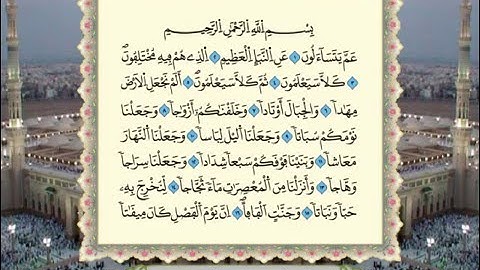 بِسْمِ اللَّهِ الرَّحْمَٰنِ الرَّحِيمِ
عَمَّ يَتَسَاءَلُونَ ١ عَنِ النَّبَإِ الْعَظِيمِ ٢ الَّذِي هُمْ فِيهِ مُخْتَلِفُونَ
٣ كَلَّا سَيَعْلَمُونَ ٤ ثُمَّ كَلَّا سَيَعْلَمُونَ ٥ أَلَمْ نَجْعَلِ الْأَرْضَ
مِهَادًا ٦ وَالْجِبَالَ أَوْتَادًا ٧ وَخَلَقْنَاكُمْ أَزْوَاجًا ٨ وَجَعَلْنَا
نَوْمَكُمْ سُبَاتًا ٩ وَجَعَلْنَا اللَّيْلَ لِبَاسًا ١٠ وَجَعَلْنَا النَّهَارَ
مَعَاشًا ١١ وَبَنَيْنَا فَوْقَكُمْ سَبْعًا شِدَادًا ١٢ وَجَعَلْنَا سِرَاجًا
وَهَّاجًا ١٣ وَأَنْزَلْنَا مِنَ الْمُعْصِرَاتِ مَاءً ثَجَّاجًا ١٤ لِنُخْرِجَ بِهِ
حَبًّا وَنَبَاتًا ١٥ وَجَنَّاتٍ أَلْفَافًا ١٦ إِنَّ يَوْمَ الْفَصْلِ كَانَ مِيقَاتًا